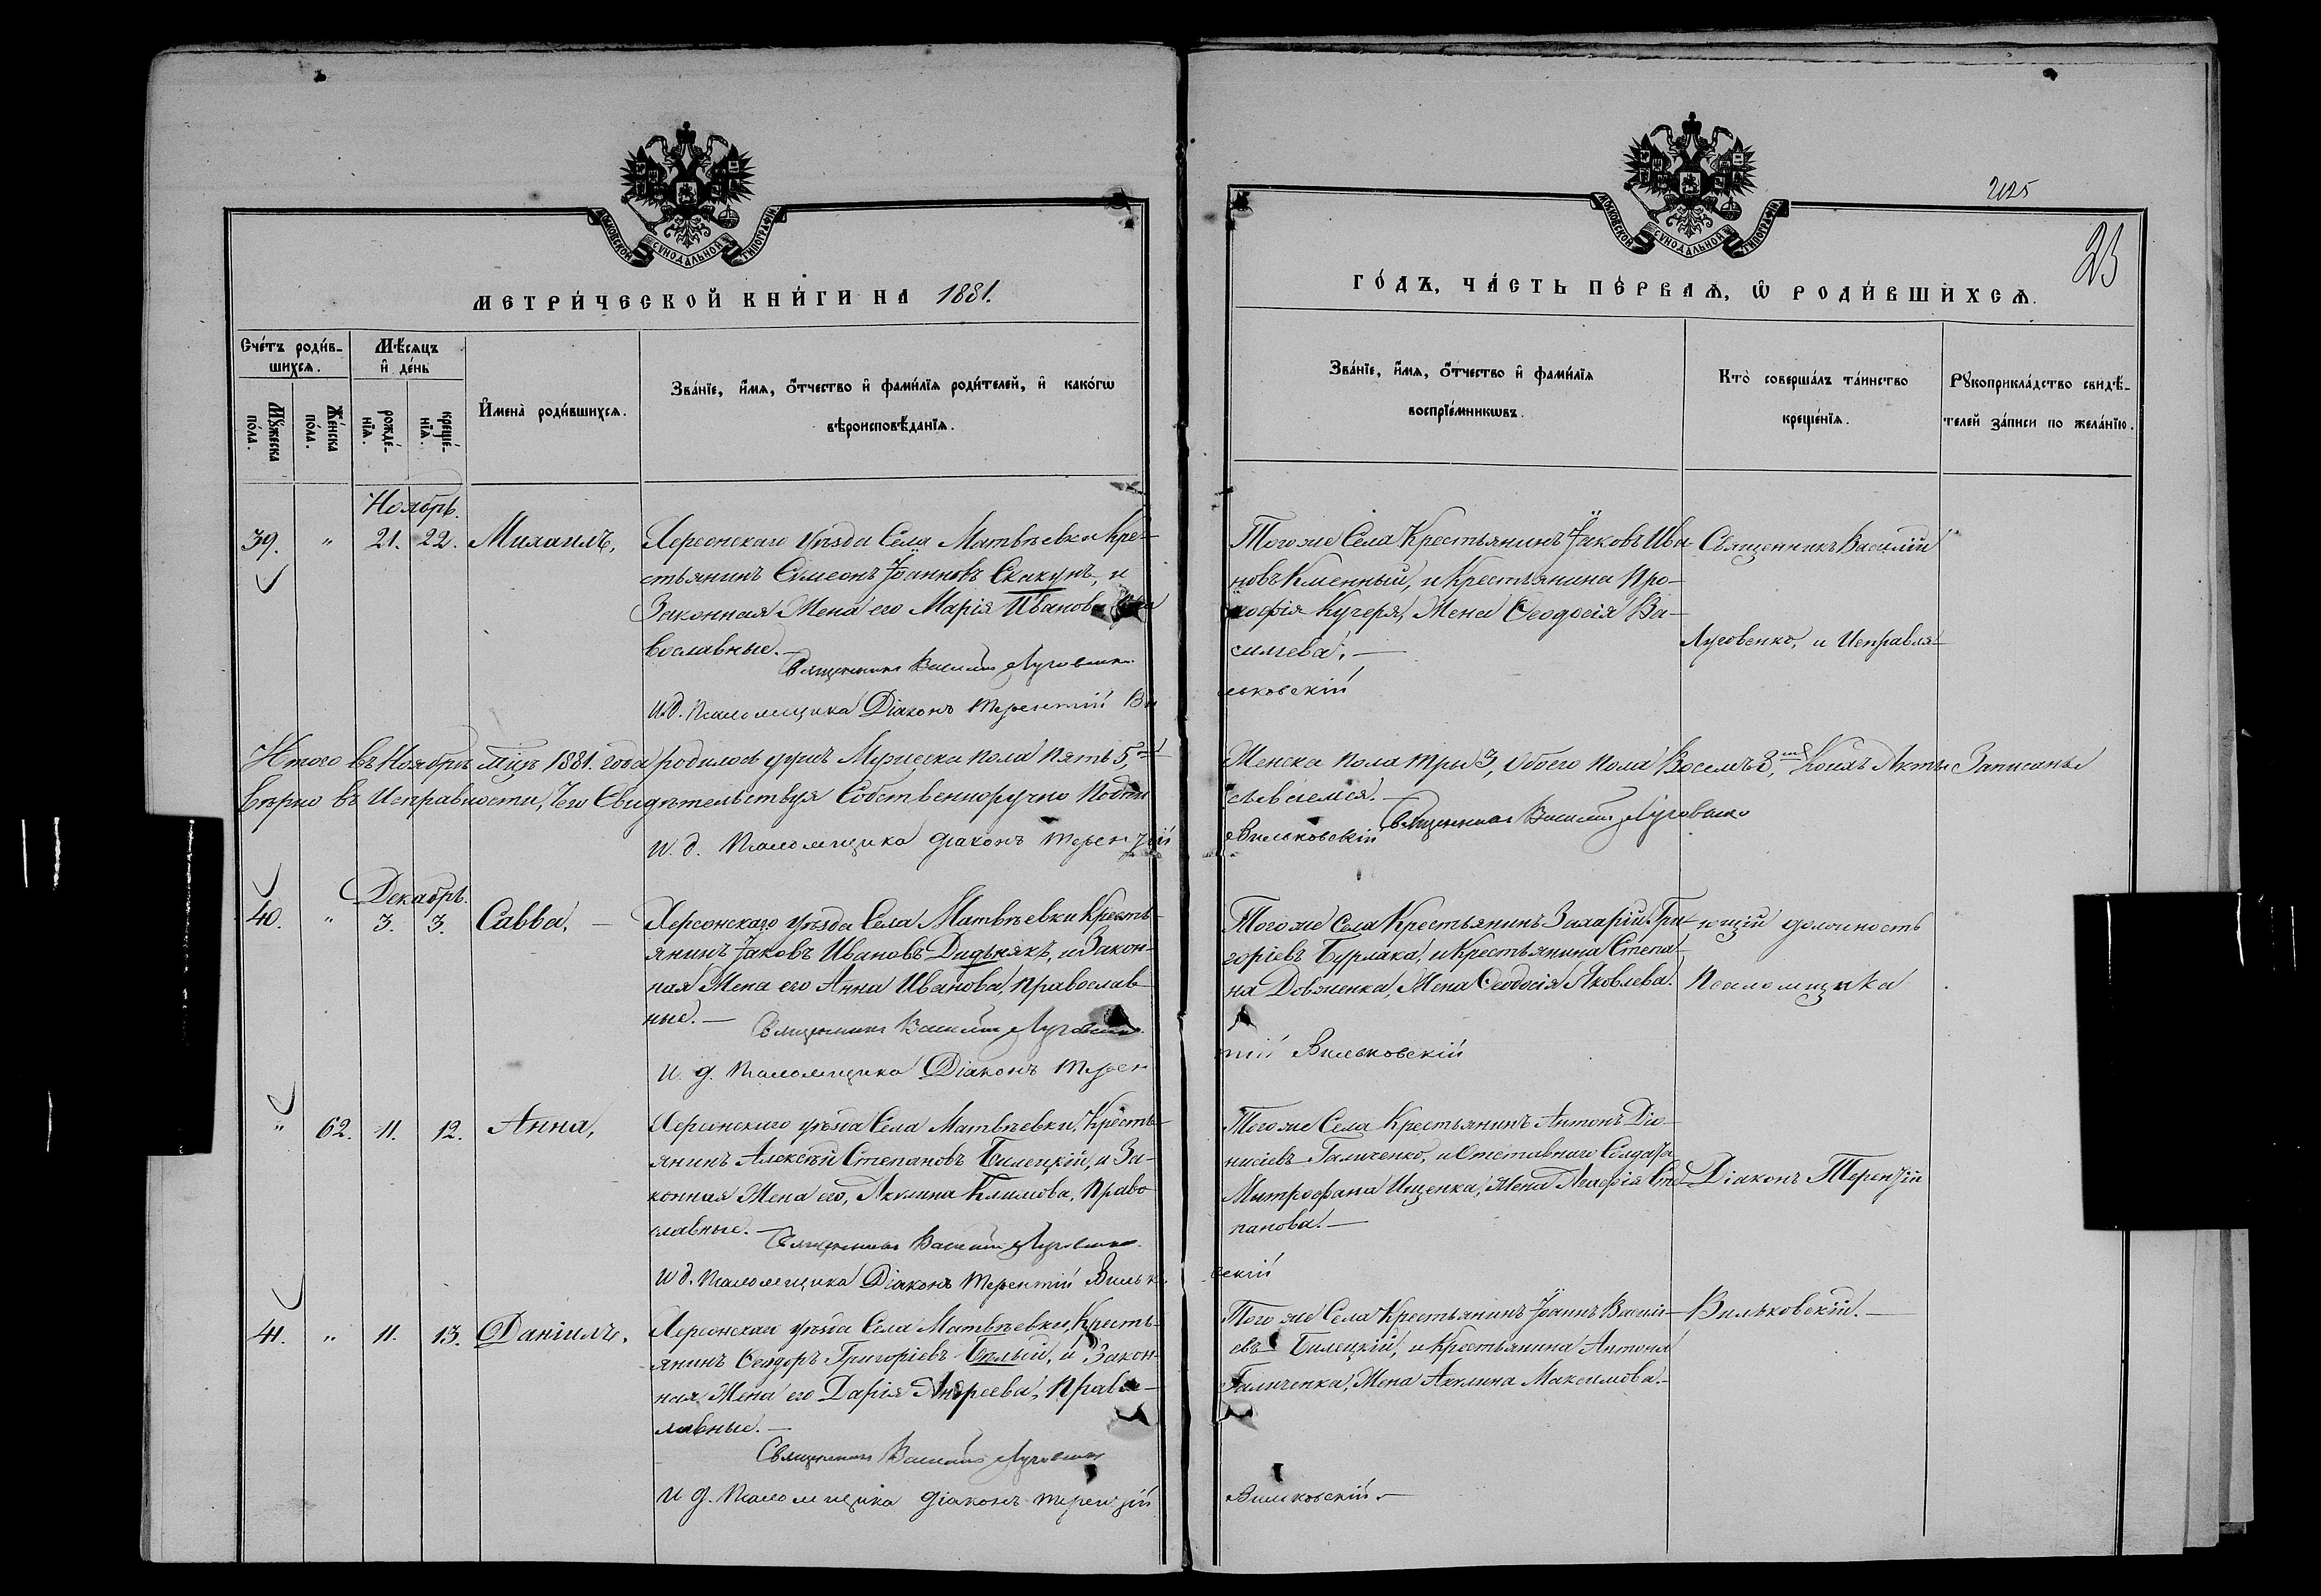 МОСКОВСКОЙ СѴНОДАЛЬНОЙ ТИПОГРАФІИ
МЕТРИ́ЧЕСКОЙ КНИ́ГИ НА 1881.
Сче́тъ роди́в-
шихсѧ.
Мѣ́сѧцъ
и҆ де́нь
Мꙋ́жеска
по́ла.
Же́нска
по́ла.
рожде́-
нїѧ.
креще́-
нїѧ.
И҆мена̀ роди́вшихсѧ.
Зва́нїе, и҆́мѧ, ѻ҆́тчество и҆ фами́лїѧ роди́телей, и҆ како́гѡ
вѣроисповѣ́данїѧ.
Ноябрь.
39. " 21. 22. Михаилъ,
Херсонскаго уѣзда Села Матвѣевки Кре-
стьянинъ Симеонъ Іоанновъ Скакунъ, и
Законная Жена его Марія Иванова
вославные.—
Священникъ Василій Луговенко
И.д. Псаломщика Діаконъ Терентій Ви
Итого въ Ноябрѣ мцѣ 1881. года родилось душъ Мужеска пола пять 5,
Вѣрно въ Исправности, Чего Свидѣтельствуя Собственноручно Подпи
И. д. Псаломщика Діаконъ Терентій
Декабрь.
40. " 3. 3. Савва,—
Херсонскаго уѣзда Села Матвѣевки Кресть-
янинъ Іаковъ Ивановъ Дидьнякъ, и Закон-
ная Жена его Анна Иванова, Православ-
ные.—
Священникъ Василій Луговенко
И. д. Псаломщика Діаконъ Терен
" 62. 11. 12. Анна,
Херсонскаго уѣзда Села Матвѣевки, Кресть-
янинъ Алексѣй Степановъ Билецкій, и За-
конная Жена его, Акилина Климова, Право-
славные.—
Священникъ Василій Луговенко
И д. Псаломщика Діаконъ Терентій Вильк
41. " 11. 13. Даніилъ,
Херсонскаго уѣзда Села Матвѣевки, Кресть-
янинъ Ѳеодоръ Григоріевъ Бѣлый, и Закон-
ная Жена его Дарія Андреева, Правос-
лавные.—
Священникъ Василій Луговенко
И д. Псаломщика Діаконъ Терентій
2125
23
МОСКОВСКОЙ СѴНОДАЛЬНОЙ ТИПОГРАФІИ
ГО́ДЪ, ЧА́СТЬ ПЕ́РВАѦ, Ѡ҆ РОДИ́ВШИХСѦ.
Зва́нїе, и҆́мѧ, ѻ҆́тчество и҆ фами́лїѧ
воспрїе́мникѡвъ.
Кто̀ соверша́лъ та́инство
креще́нїѧ.
Рꙋкоприкла́дство свидѣ́-
телей за́писи по жела́нїю.
Того же Села Крестьянинъ Іаковъ Ива-
новъ Кменный, и Крестьянина Про-
кофія Кучеря, Жена Ѳеодосія Ва-
силіева,—
льковскій
Священникъ Василій
Луговенко, и Исправля-
Женска пола три 3, Обоего пола Восемь 8, Коихъ Акты Записаны
сываемся.—
Священникъ Василій Луговенко
Вильковскій
Того же Села Крестьянинъ Захарій Гри-
горіевъ Бурлака, и Крестьянина Степа-
на Довженка, Жена Ѳеодосія Яковлева.
тій Вильковскій
ющій должность
Псаломщика
Того же Села Крестьянинъ Антонъ Діо-
нисіевъ Галиченко, и Отставнаго Солдата
Митрофана Ищенка, Жена Агафія Сте-
панова.—
скій
Діаконъ Терентій
Того же Села Крестьянинъ Іоаннъ Василі-
евъ Билецкій, и Крестьянина Антона
Галиченка, Жена Акилина Максимова.—
Вильковскій.—
Вильковскій.—